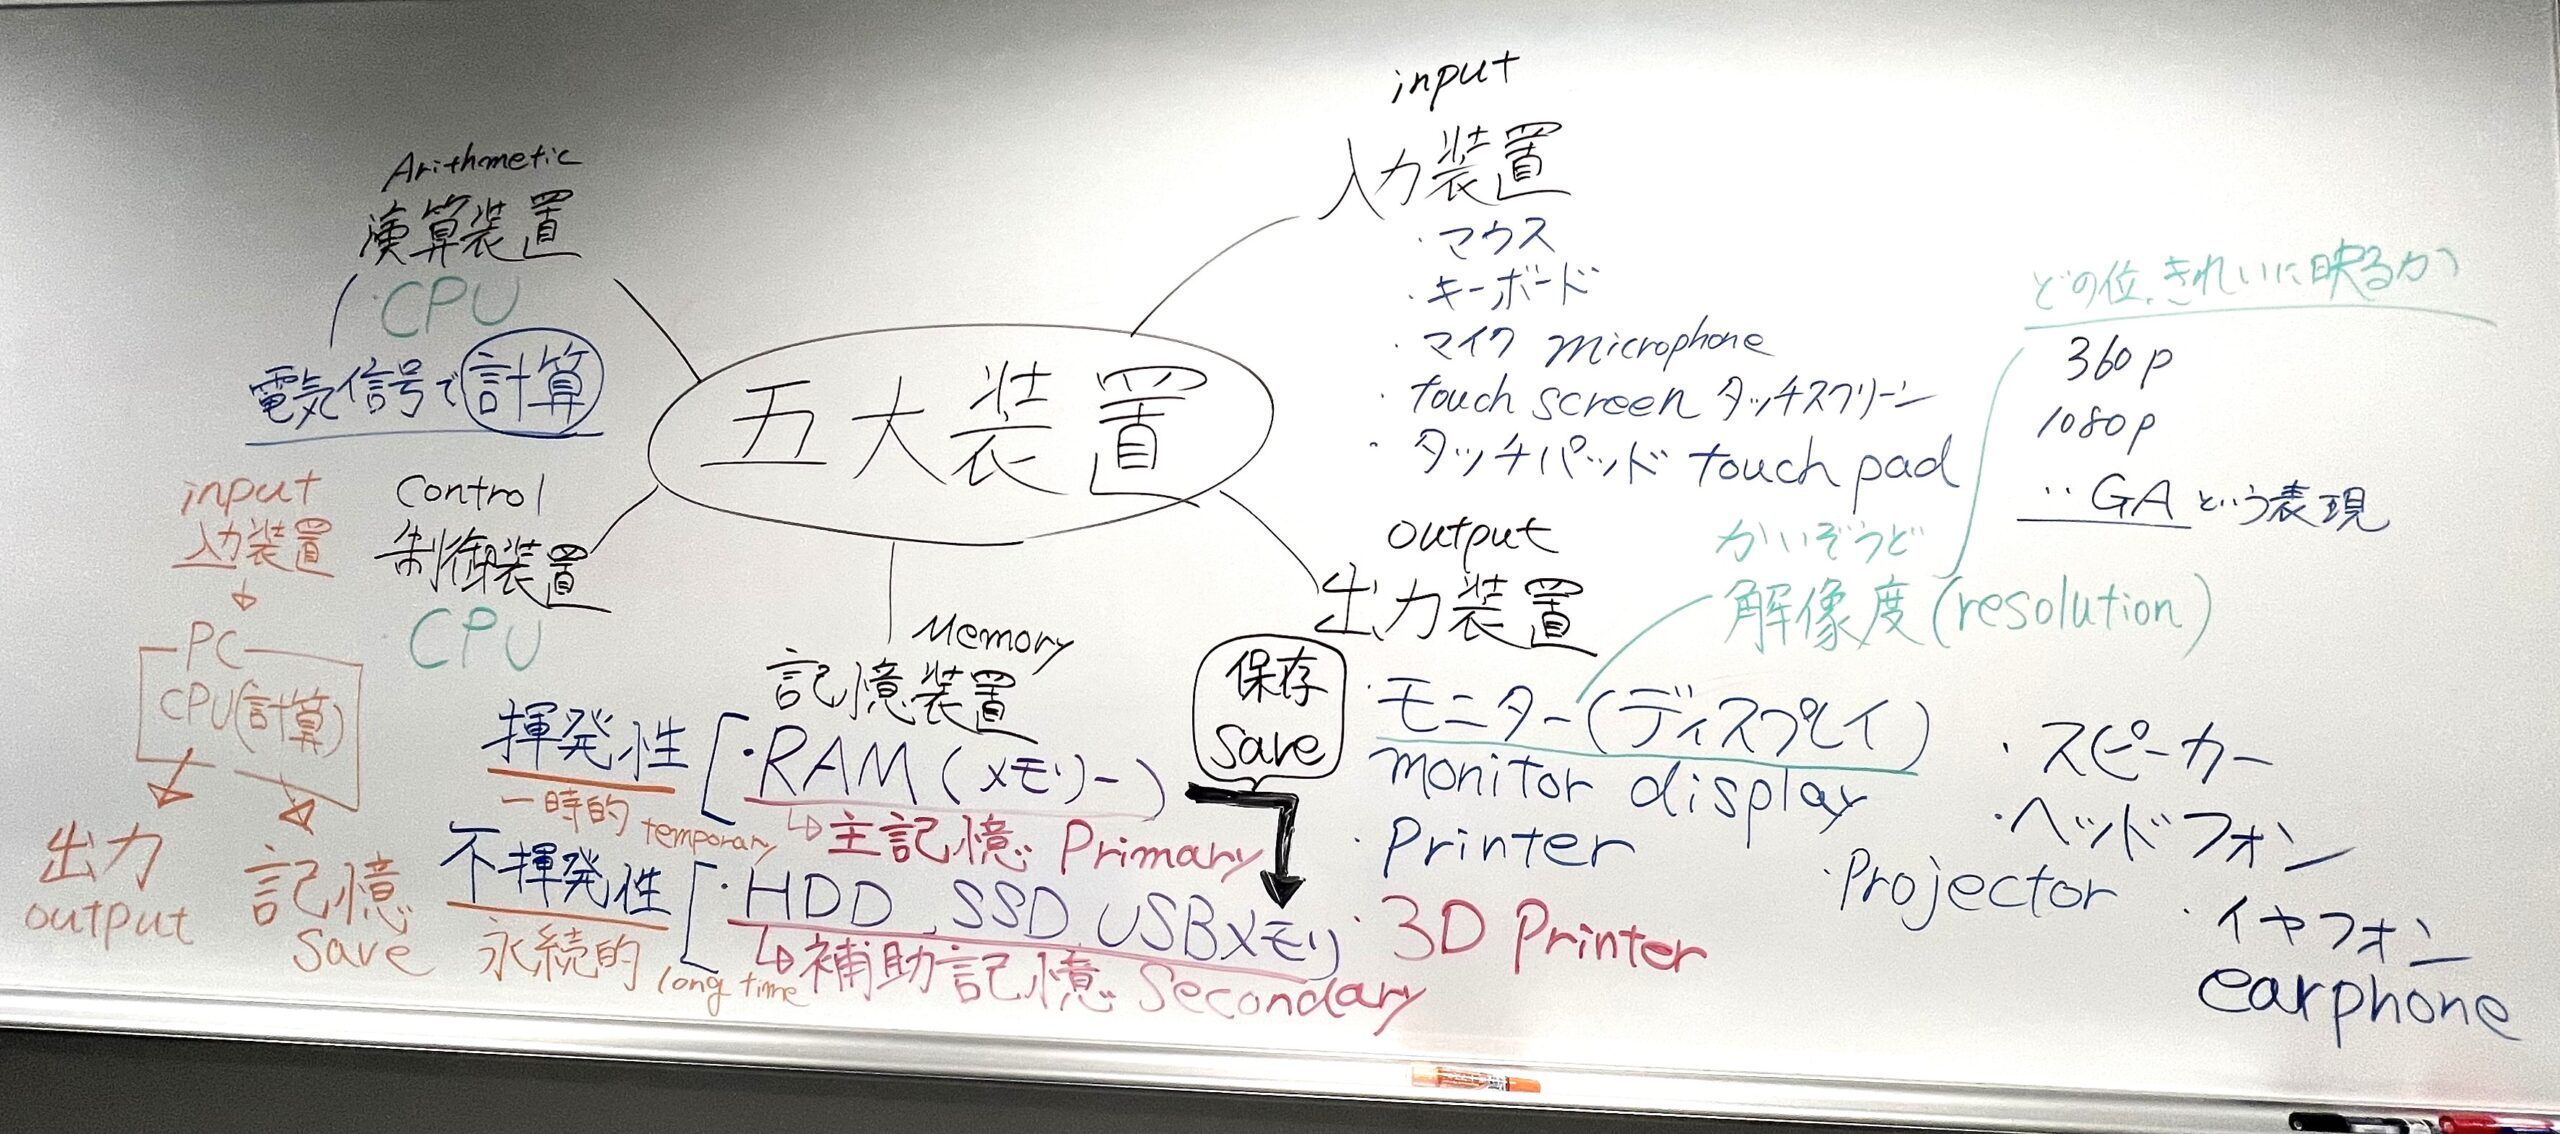 五大装置
Arithmetic
演算装置
CPU
電気信号で計算
Control
制御装置
CPU
input
入力装置
PC
CPU(計算)
出力
output
記憶
save
Memory
記憶装置
揮発性
一時的 temporary
・RAM(メモリー)
↳主記憶 Primary
不揮発性
永続的 long time
・HDD、SSD、USBメモリ
↳補助記憶 Secondary
保存
save
input
入力装置
・マウス
・キーボード
・マイク microphone
・touch screen タッチスクリーン
・タッチパッド touch pad
output
出力装置
・モニター(ディスプレイ)
monitor display
・Printer
・3D Printer
・Projector
・スピーカー
・ヘッドフォン
・イヤフォン
earphone
かいぞうど
解像度(resolution)
どの位、きれいに映るか
360p
1080p
‥GAという表現